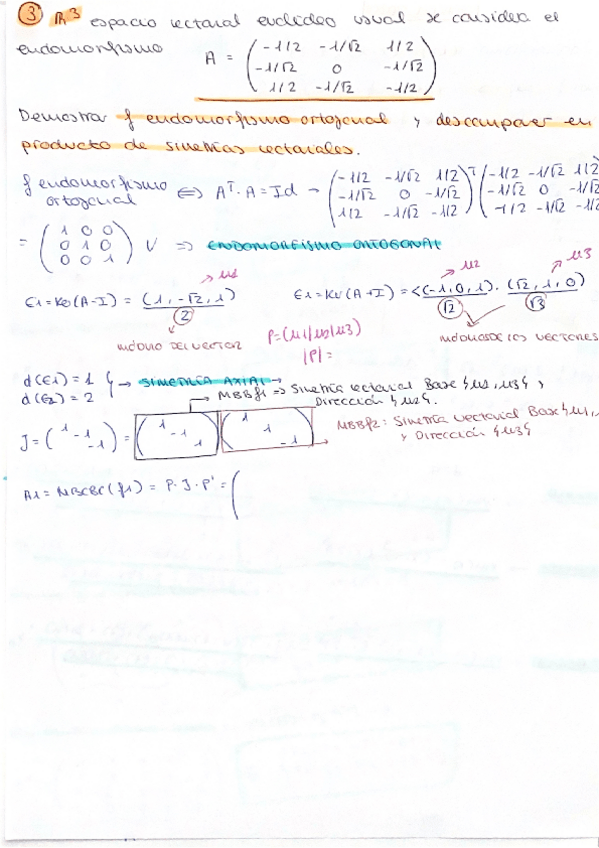 ③ R³ espacio vectorial euclídeo usual se considera el
endomorfismo A = (-1/2 -1/√2 1/2
-1/√2 0 -1/√2
1/2 -1/√2 -1/2)
Demostrar f endomorfismo ortogonal y descomponer en
producto de simetrías vectoriales.
f endomorfismo ortogonal ⟺ Aᵀ·A = Id → (-1/2 -1/√2 1/2
-1/√2 0 -1/√2
1/2 -1/√2 -1/2)ᵀ (-1/2 -1/√2 1/2
-1/√2 0 -1/√2
-1/2 -1/√2 -1/2
= (1 0 0
0 1 0
0 0 1) V ⇒ ENDOMORFISMO ORTOGONAL
μ1 μ2 μ3
ε1 = Ker(A-I) = (1, -√2, 1) / 2 ε1 = Ker(A+I) = <(-1, 0, 1) / √2 . (√2, 1, 0) / √3
módulo del vector P = (μ1|μ2|μ3) módulos de los vectores
|P| =
d(ε1) = 1
d(ε2) = 2 } → SIMETRÍA AXIAL
→ MBBf1 => Simetría vectorial Base {μ1, μ3} y
Dirección {μ2}.
J = (1 -1 -1) = (1 -1 1) (1 1 -1) MBBf2: Simetría vectorial Base {μ1,
y Dirección {μ3}
A1 = MBCBC(f1) = P · J · P' = (